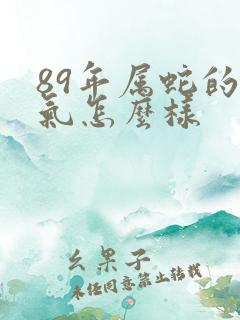 89年属蛇的
氣怎麼様
幺果子
未经同意禁止转载